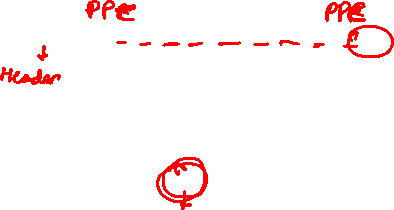 PPE PPE
Header